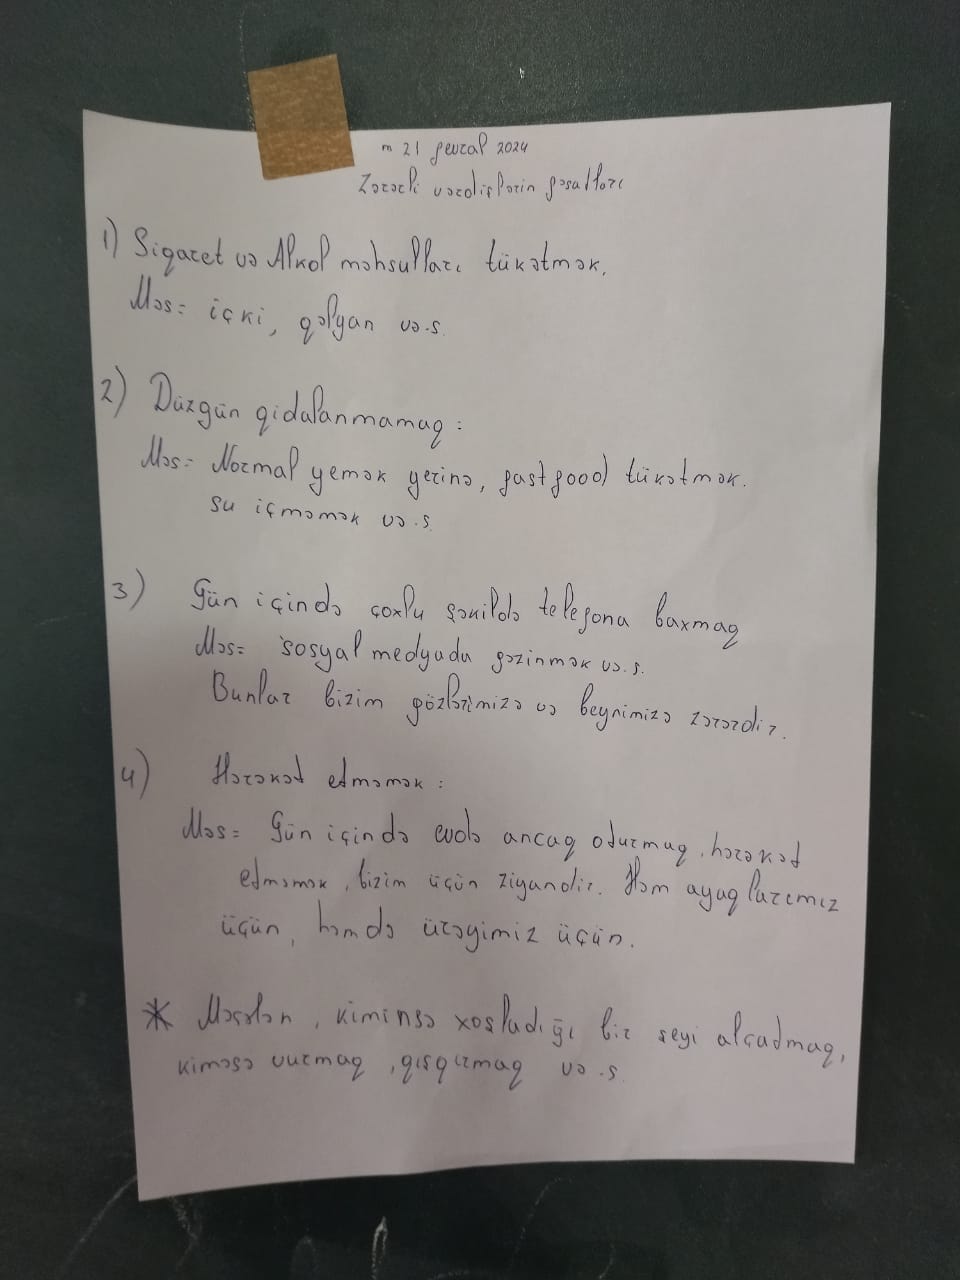 21 fevral 2024
Zərərli vərdişlərin fəsadları
1) Siqaret və Alkol məhsulları tükətmək.
Məs= içki, qəlyan və.s.
2) Düzgün qidalanmamaq :
Məs= Normal yemək yerinə, fastfood tükətmək.
su içməmək və.s.
3) Gün içində çoxlu şəkildə telefona baxmaq
Məs= sosyal medyada gəzinmək və.s.
Bunlar bizim gözlərimizə və beynimizə zərərdir.
4) Hərəkət etməmək :
Məs= Gün içində evdə ancaq oturmaq, hərəkət
etməmək, bizim üçün ziyandir. Həm ayaqlarımız
üçün, həmdə ürəyimiz üçün.
* Məsələn, kiminsə xoşladığı bir şeyi alçatmaq,
kiməsə vurmaq, qışqırmaq və.s.